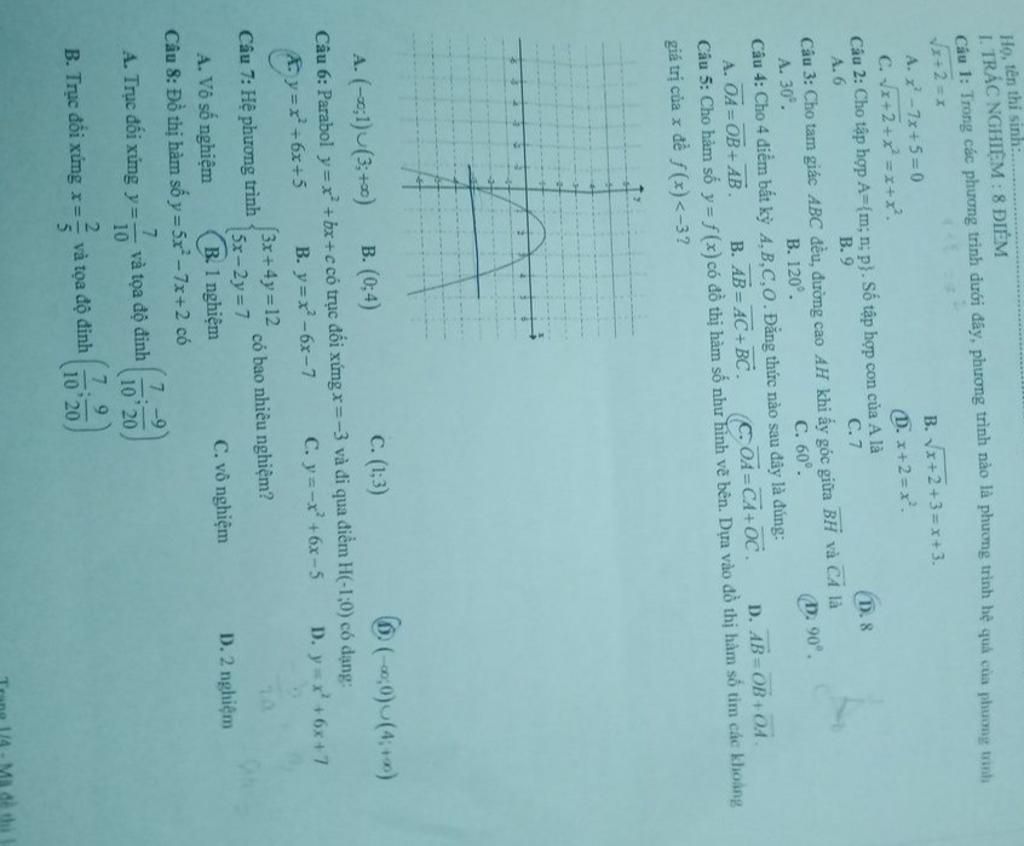 Họ, tên thí sinh:
I. TRẮC NGHIỆM : 8 ĐIỂM
Câu 1: Trong các phương trình dưới đây, phương trình nào là phương trình hệ quả của phương trình
√x+2 = x
A. x² − 7x + 5 = 0 B. √x+2 + 3 = x + 3.
C. √x+2 + x² = x + x². D. x + 2 = x².
Câu 2: Cho tập hợp A={m; n; p}. Số tập hợp con của A là
A. 6 B. 9 C. 7 D. 8
Câu 3: Cho tam giác ABC đều, đường cao AH khi ấy góc giữa BH và CA là
A. 30⁰. B. 120⁰. C. 60⁰. D. 90⁰.
Câu 4: Cho 4 điểm bất kỳ A, B, C, O. Đẳng thức nào sau đây là đúng:
A. OA = OB + AB. B. AB = AC + BC. C. OA = CA + OC. D. AB = OB + OA.
Câu 5: Cho hàm số y = f(x) có đồ thị hàm số như hình vẽ bên. Dựa vào đồ thị hàm số tìm các khoảng
giá trị của x để f(x) < −3?
y
x
A. (−∞;1)∪(3;+∞) B. (0;4) C. (1;3) D. (−∞;0)∪(4;+∞)
Câu 6: Parabol y = x² + bx + c có trục đối xứng x = −3 và đi qua điểm H(-1;0) có dạng:
A. y = x² + 6x + 5 B. y = x² − 6x − 7 C. y = −x² + 6x − 5 D. y = x² + 6x + 7
Câu 7: Hệ phương trình {3x + 4y = 12 5x − 2y = 7 có bao nhiêu nghiệm?
A. Vô số nghiệm B. 1 nghiệm C. vô nghiệm D. 2 nghiệm
Câu 8: Đồ thị hàm số y = 5x² − 7x + 2 có
A. Trục đối xứng y = 7/10 và tọa độ đỉnh (7/10; −9/20)
B. Trục đối xứng x = 2/5 và tọa độ đỉnh (7/10; 9/20)
Trang 1/4 - Mã đề thi